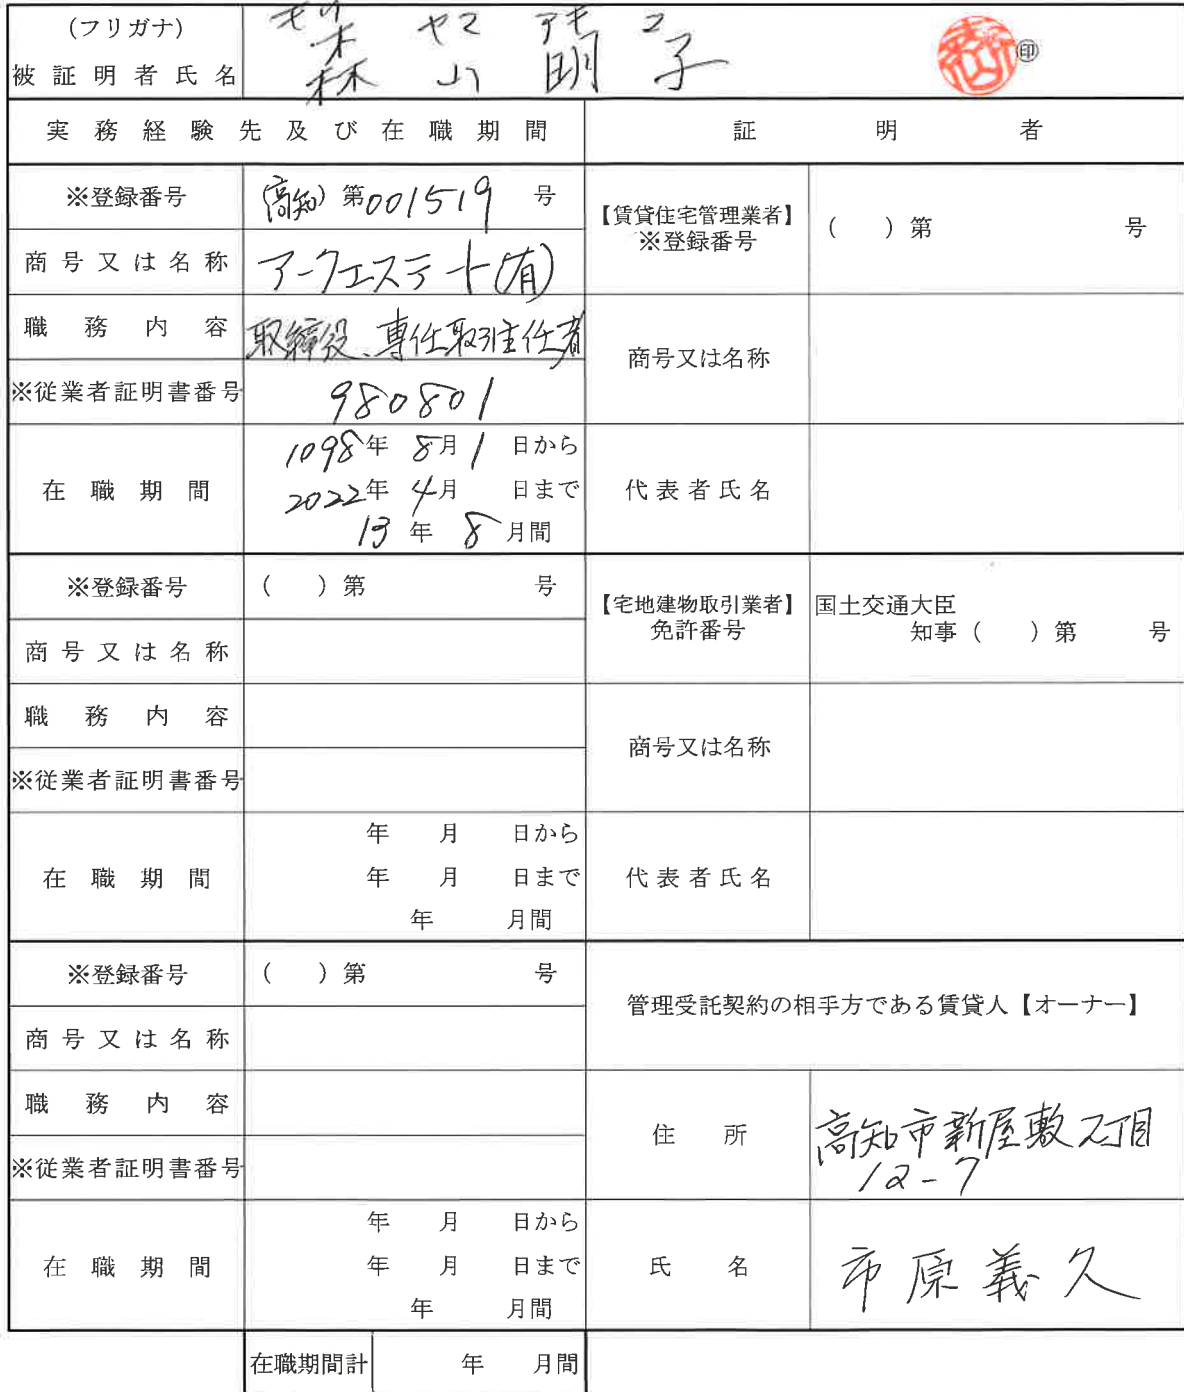 (フリガナ) モリ ヤマ アキ コ
被証明者氏名 森山明子 ㊞
実務経験先及び在職期間 証明者
※登録番号 (高知)第001519号
商号又は名称 アークエステート(有)
職務内容 取締役、専任取引主任者
※従業者証明書番号 980801
在職期間 1098年8月1日から
2022年4月 日まで
13年8月間
【賃貸住宅管理業者】
※登録番号 ( )第 号
商号又は名称
代表者氏名
※登録番号 ( )第 号
商号又は名称
職務内容
※従業者証明書番号
在職期間 年 月 日から
年 月 日まで
年 月間
【宅地建物取引業者】
免許番号 国土交通大臣
知事( )第 号
商号又は名称
代表者氏名
※登録番号 ( )第 号
商号又は名称
職務内容
※従業者証明書番号
在職期間 年 月 日から
年 月 日まで
年 月間
管理受託契約の相手方である賃貸人【オーナー】
住所 高知市新屋敷2丁目
12-7
氏名 市原義久
在職期間計 年 月間